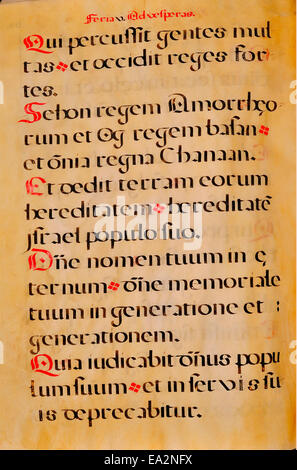 Feria v. Ad vesperas.
Qui percussit gentes mul
tas ⁘ et occidit reges for
tes.
Sehon regem Amorrhęo
rum et Og regem basan ⁘
et oĩa regna Chanaan.
Et dedit terram eorum
hereditatem ⁘ hereditatē
jsrael populo suo.
Dñe nomen tuum in ę
ternum ⁘ dñe memoriale
tuum in generatione et
generationem.
Quia iudicabit dñus popu
lum suum ⁘ et in servis su
is deprecabitur.
alamy stock photo
a
alamy
EA2NFX
www.alamy.com